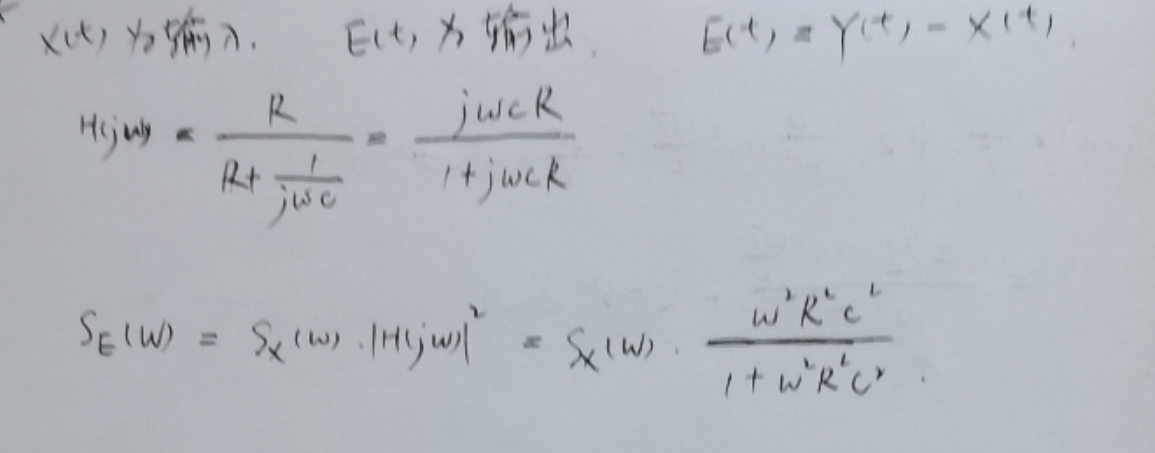 X(t) 为输入. E(t) 为输出. E(t) = Y(t) - X(t).
H(jw) = R / (R + 1/(jwc)) = jwcR / (1+jwcR)
S_E(w) = S_X(w) · |H(jw)|² = S_X(w) · w²R²c² / (1+w²R²c²).